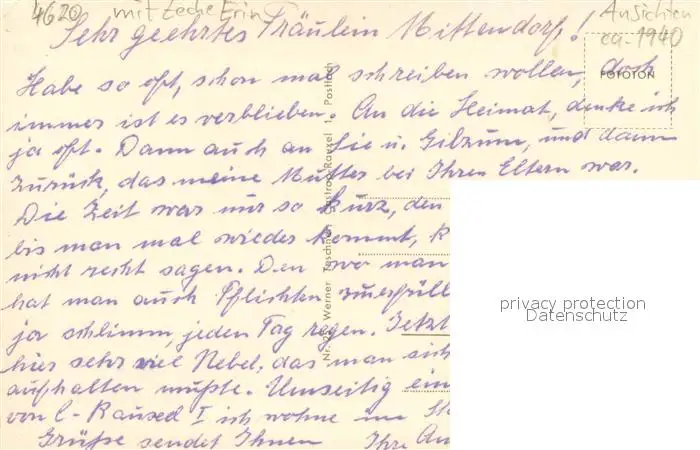 4620 mit Zeche Erin Ansichten
ca. 1940
Sehr geehrtes Fräulein Mittendorf!
FOTOTON
Habe so oft, schon mal schreiben wollen, doch
immer ist es verblieben. An die Heimat, denke ich
ja oft. Dann auch an Sie u. Gilzum, und dann
zurück, das meine Mutter bei Ihren Eltern war.
Die Zeit war nur so kurz, den
bis man mal wieder kommt, k
nicht recht sagen. Den wo man
hat man auch Pflichten zuerfüll
ja schlimm, jeden Tag regen. Jetzt
hier sehr viel Nebel, das man sich
aufhalten mußte. Umseitig ein
von C-Rauxel I ich wohne im
Grüße sendet Ihnen Ihre An
Nr. Werner Taschner Castrop-Rauxel 1 Postfach
privacy protection
Datenschutz